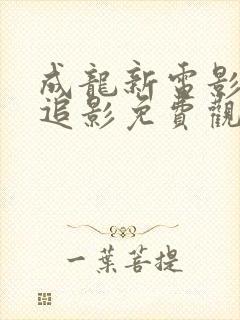 成龍新電影
追影免費觀
一葉菩提